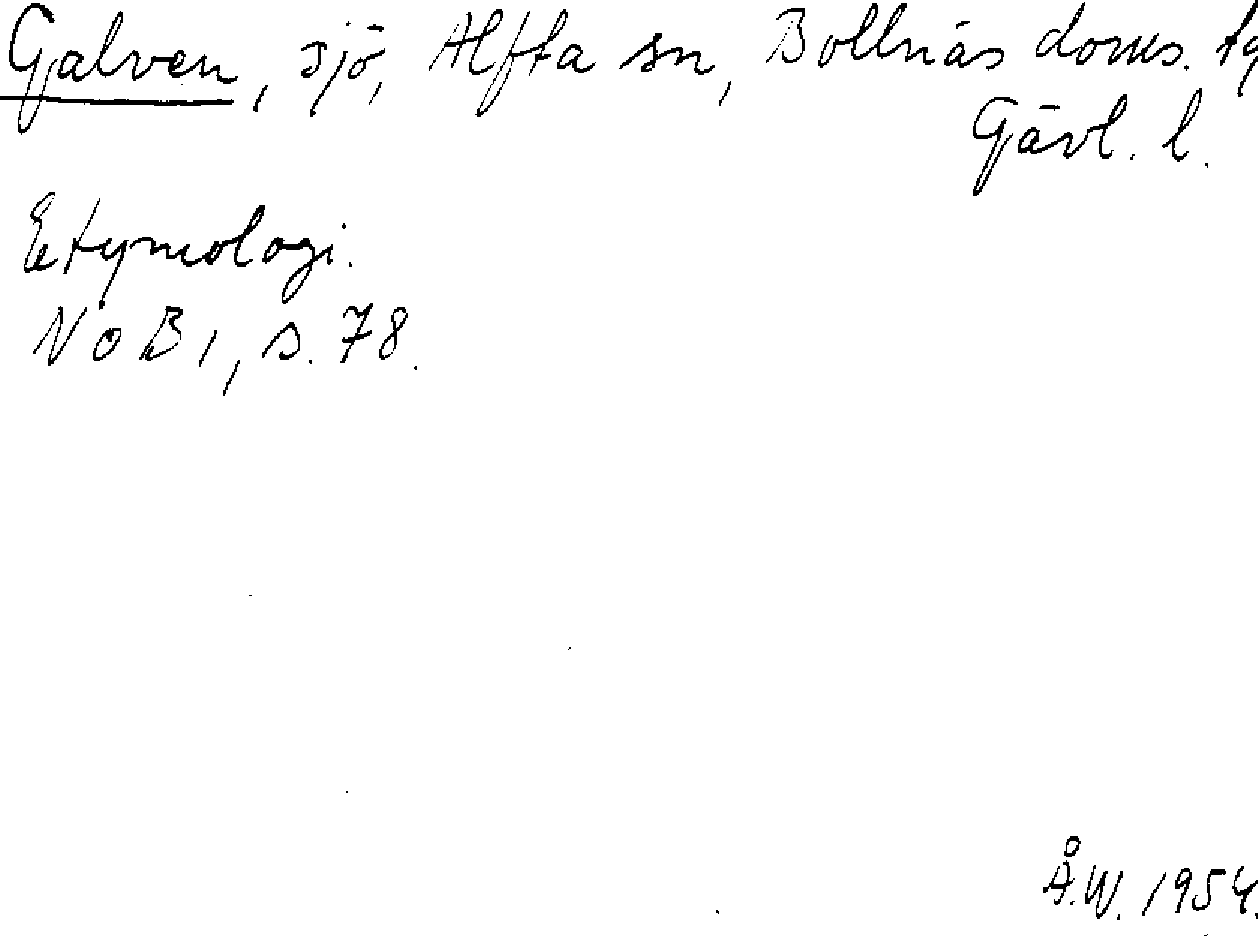 Galven, sjö, Alfta sn, Bollnäs doms. tg
Gävl. l.
Etymologi.
NoB 1, s. 78.
Å.W. 1954.